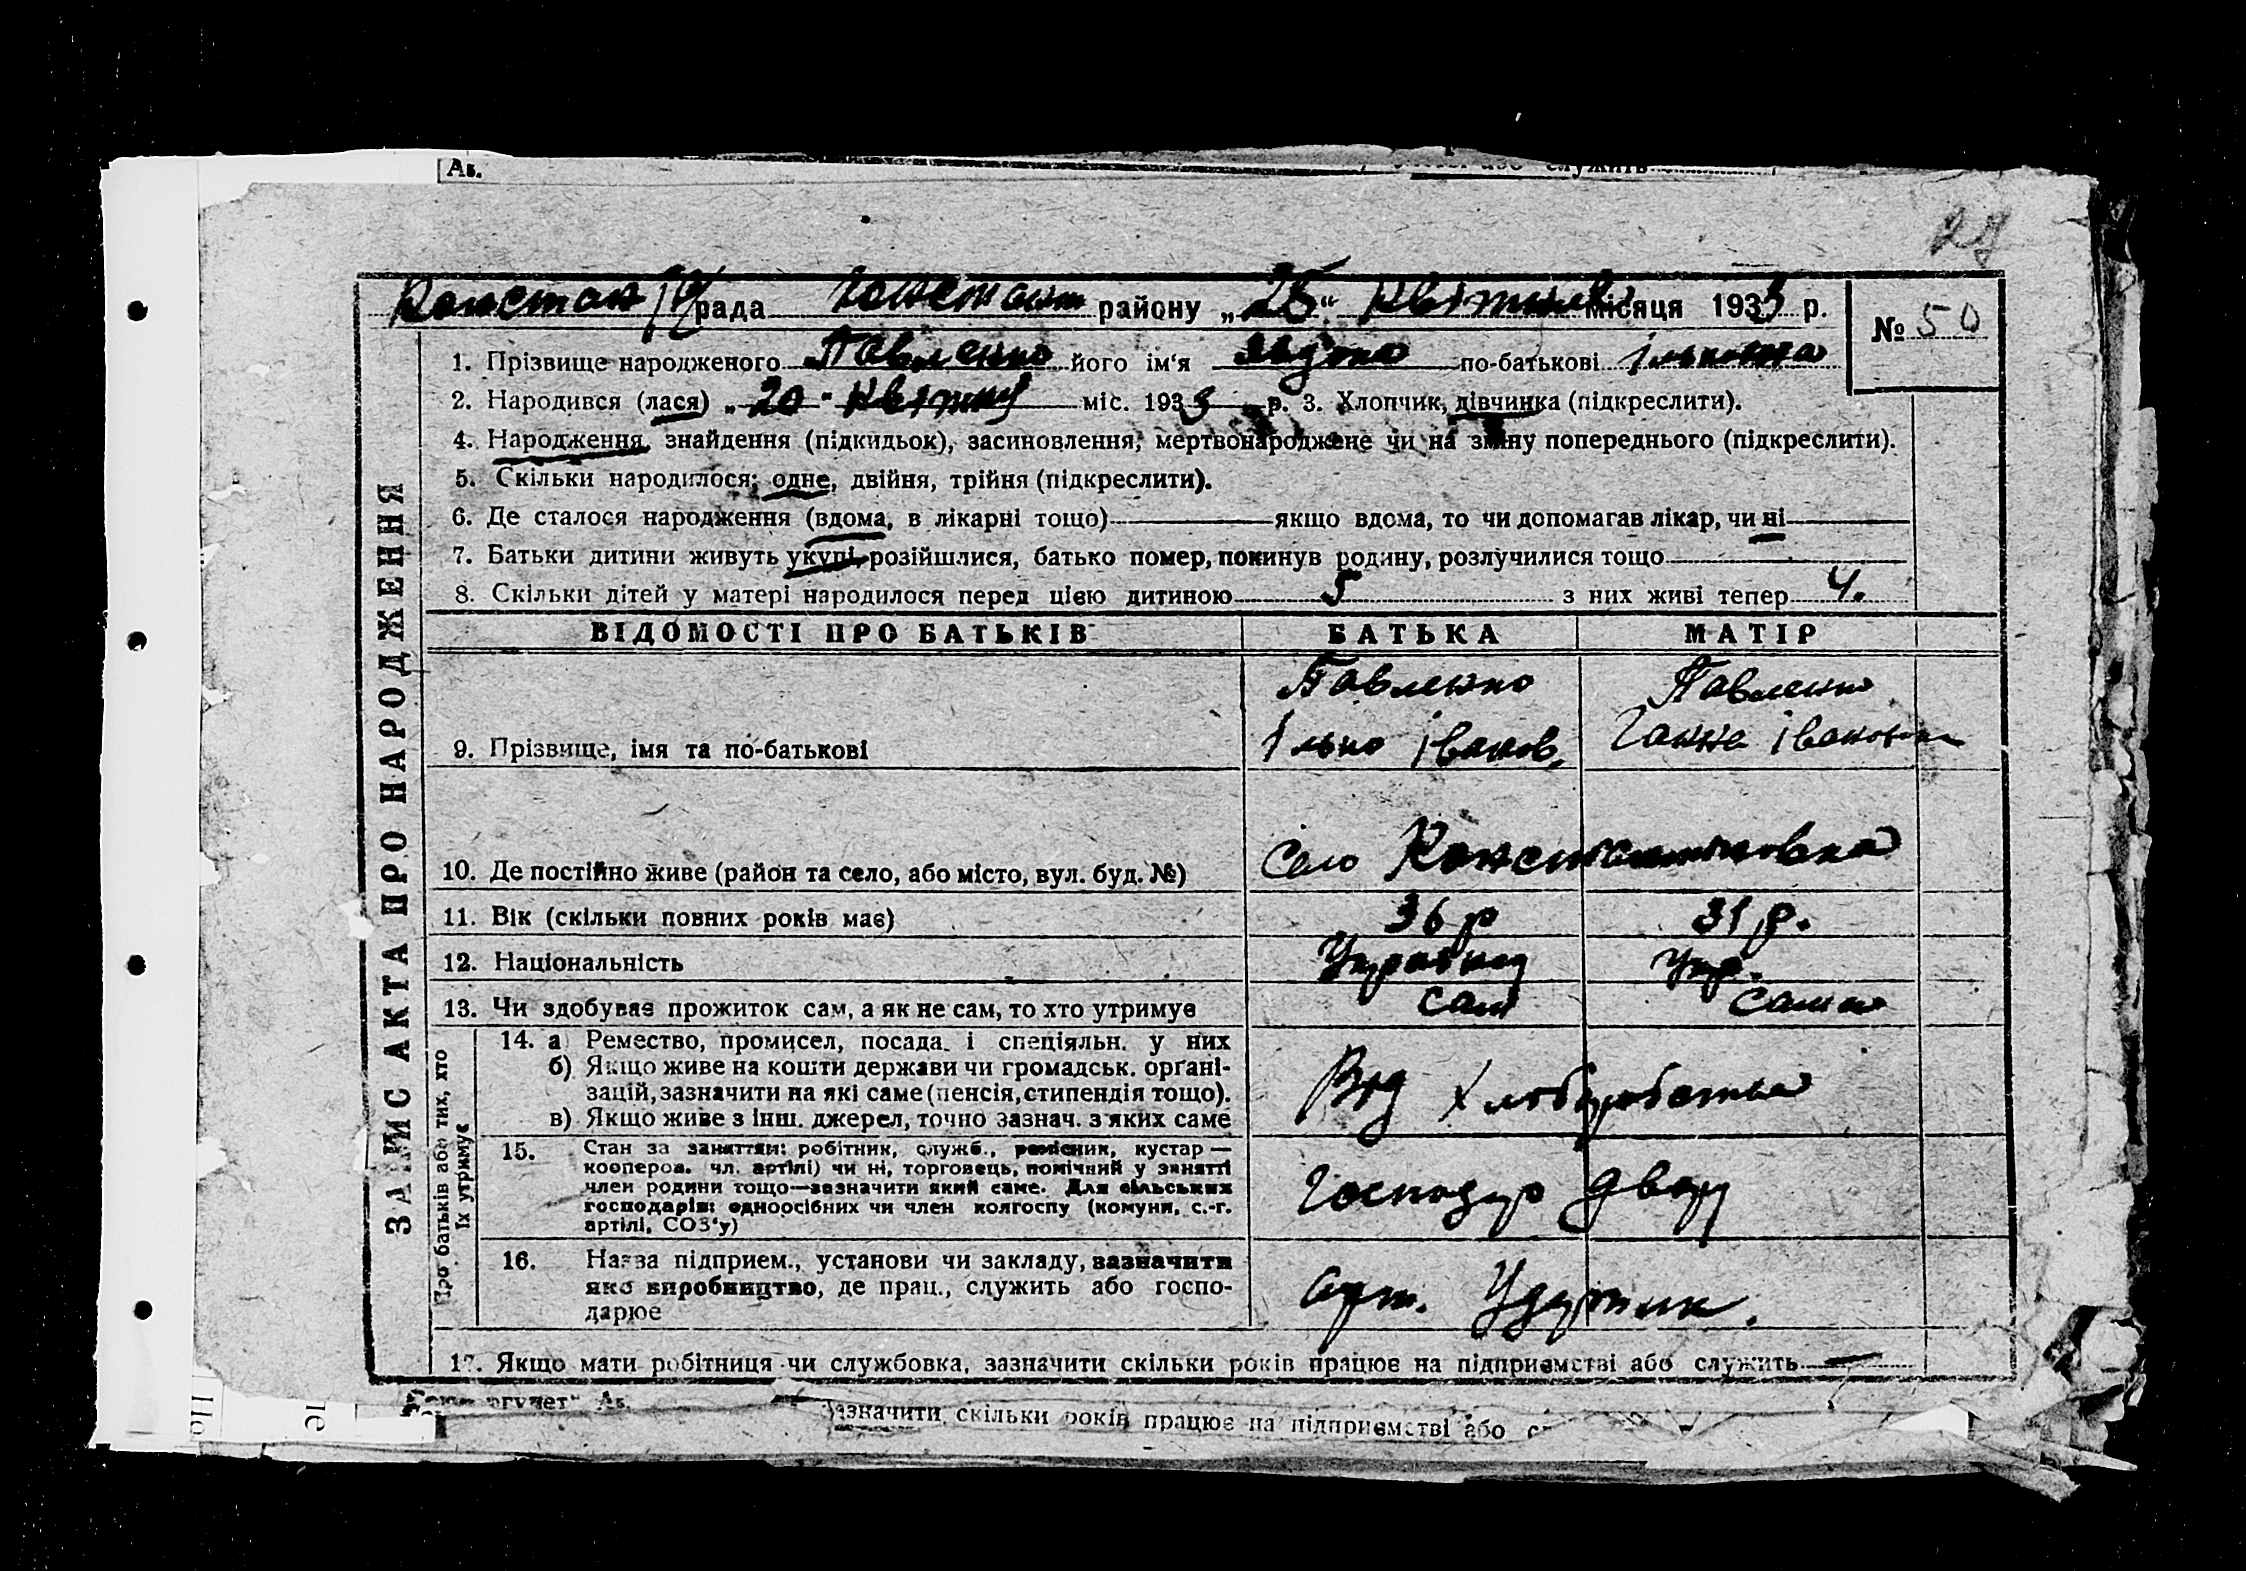 Ав.
Констан рада Констант району „25“ Квітня місяця 1933 р.
№ 50
1. Прізвище народженого Павленко його ім‘я Явдоха по-батькові Ільковна
2. Народився (лася) „20“ Квітня міс. 1933 р. 3. Хлопчик, дівчинка (підкреслити).
4. Народження, знайдення (підкидьок), засиновлення, мертвонароджене чи на зміну попереднього (підкреслити).
5. Скільки народилося: одне, двійня, трійня (підкреслити).
6. Де сталося народження (вдома, в лікарні тощо) якщо вдома, то чи допомагав лікар, чи ні
7. Батьки дитини живуть укупі, розійшлися, батько помер, покинув родину, розлучилися тощо
8. Скільки дітей у матері народилося перед цією дитиною 5 з них живі тепер 4.
ЗАПИС АКТА ПРО НАРОДЖЕННЯ
ВІДОМОСТІ ПРО БАТЬКІВ БАТЬКА МАТІР
Павленко Павленко
9. Прізвище, імя та по-батькові Ілько Іванов. Ганна Івановна
10. Де постійно живе (район та село, або місто, вул. буд. №) Село Константиновка
11. Вік (скільки повних років має) 36 р 31 р.
12. Національність Українец Укр.
13. Чи здобуває прожиток сам, а як не сам, то хто утримує сам сама
Про батьків або тих, хто їх утримує
14. а Ремество, промисел, посада. і спеціяльн. у них
б) Якщо живе на кошти держави чи громадськ. орґані-
зацій, зазначити на які саме (пенсія, стипендія тощо).
в) Якщо живе з інш. джерел, точно зазнач. з яких саме
Від хлоборобства
15. Стан за заняттям: робітник, служб., ремісник, кустар —
кооперов. чл. артілі) чи ні, торговець, помічний у занятті
член родини тощо—зазначити який саме. Для сільських
господарів: одноосібних чи член колгоспу (комуни, с.-г.
артілі, СОЗ‘у)
Господур двору
16. Назва підприєм., установи чи закладу, зазначити
яке виробництво, де прац., служить або госпо-
дарює
Арт. Ударник.
17. Якщо мати робітниця чи службовка, зазначити скільки років працює на підприємстві або служить —
зазначити скільки років працює на підприємстві або